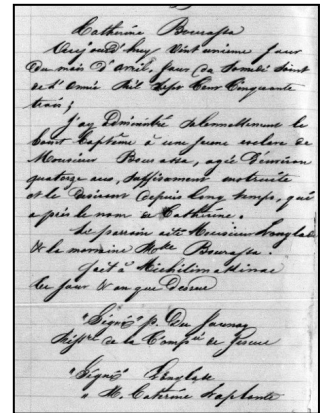 Catherine Bourassa
Aujourd'huy vint unieme Jour
du mois d'avril, jour du Samedi Saint
de l'Année Mil Sept Cent Cinquante
trois;
J'ay administré Solennellement le
Saint Baptême à une jeune esclave de
Monsieur Bourassa, agée d'environ
quatorze ans, suffisament instruite
et le desirant depuis long temps, qui
a pris le nom de Catherine.
Le parrain a été Monsieur Langlade
& la marraine Mlle Bourassa.
fait à Michilimakinac
les Jour & an que Dessus
"Signé" p. Du Jaunay
Miss.re de la Comp.ie de Jesus
"Signé" Langlade
" M. Catherine Laplante